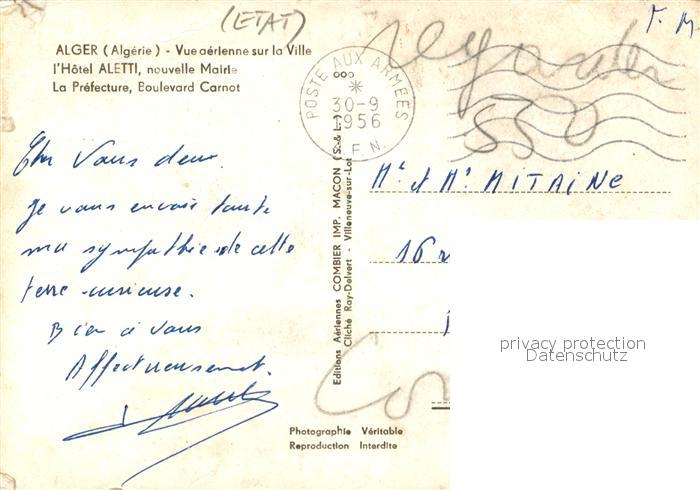 (ETAT)
F. M.
ALGER (Algérie) - Vue aérienne sur la Ville
l'Hôtel ALETTI, nouvelle Mairie
La Préfecture, Boulevard Carnot
POSTE AUX ARMÉES
30-9
1956
F. N.
Cher Vous deux
Je vous envoie toute
ma sympathie de cette
terre curieuse.
Bien à vous
Affectueusement.
Editions Aériennes COMBIER IMP. MACON (S.-&-L.)
Cliché Ray-Delvert - Villeneuve-sur-Lot
530
Mr et Me MITAINE
16 r
privacy protection
Datenschutz
Photographie Véritable
Reproduction Interdite